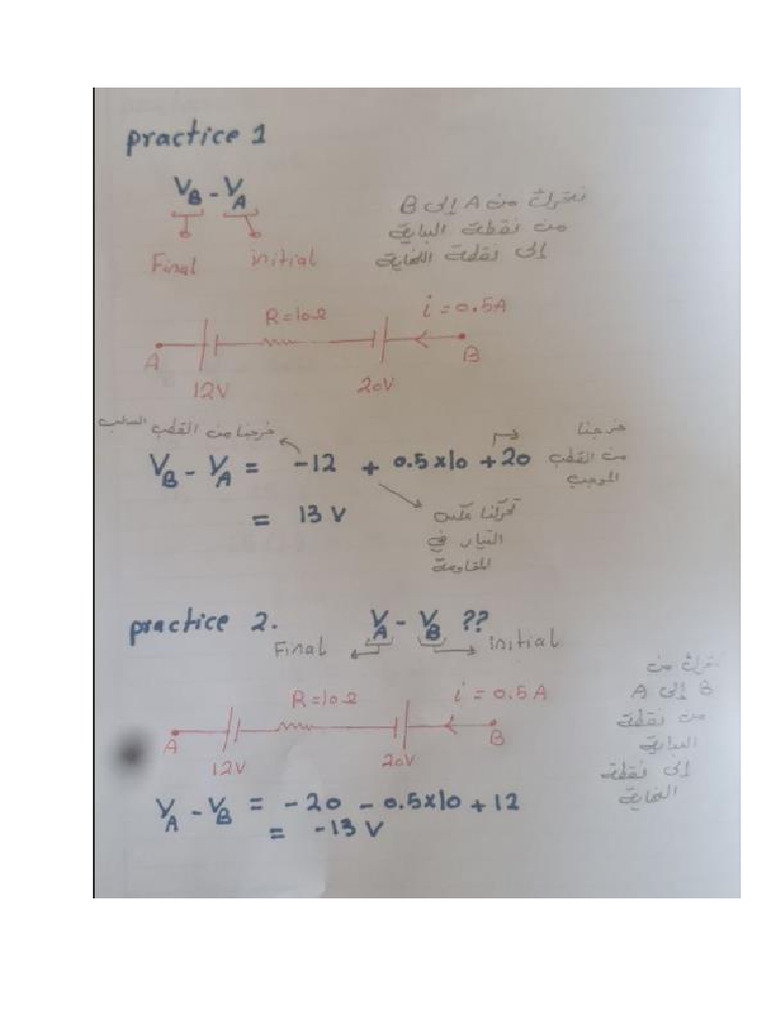 practice 1
V_B - V_A
Final initial
نتحرك من A إلى B
من نقطة البداية
إلى نقطة النهاية
R=10Ω
i = 0.5A
A
B
12V
20V
خرجنا من القطب السالب
خرجنا
من القطب
الموجب
V_B - V_A = -12 + 0.5x10 +20
= 13 V
تحركنا عكس
التيار في
المقاومة
practice 2. V_A - V_B ??
Final initial
نتحرك من
B إلى A
من نقطة
البداية
إلى نقطة
النهاية
R=10Ω
i = 0.5A
A
B
12V
20V
V_A - V_B = -20 - 0.5x10 +12
= -13 V